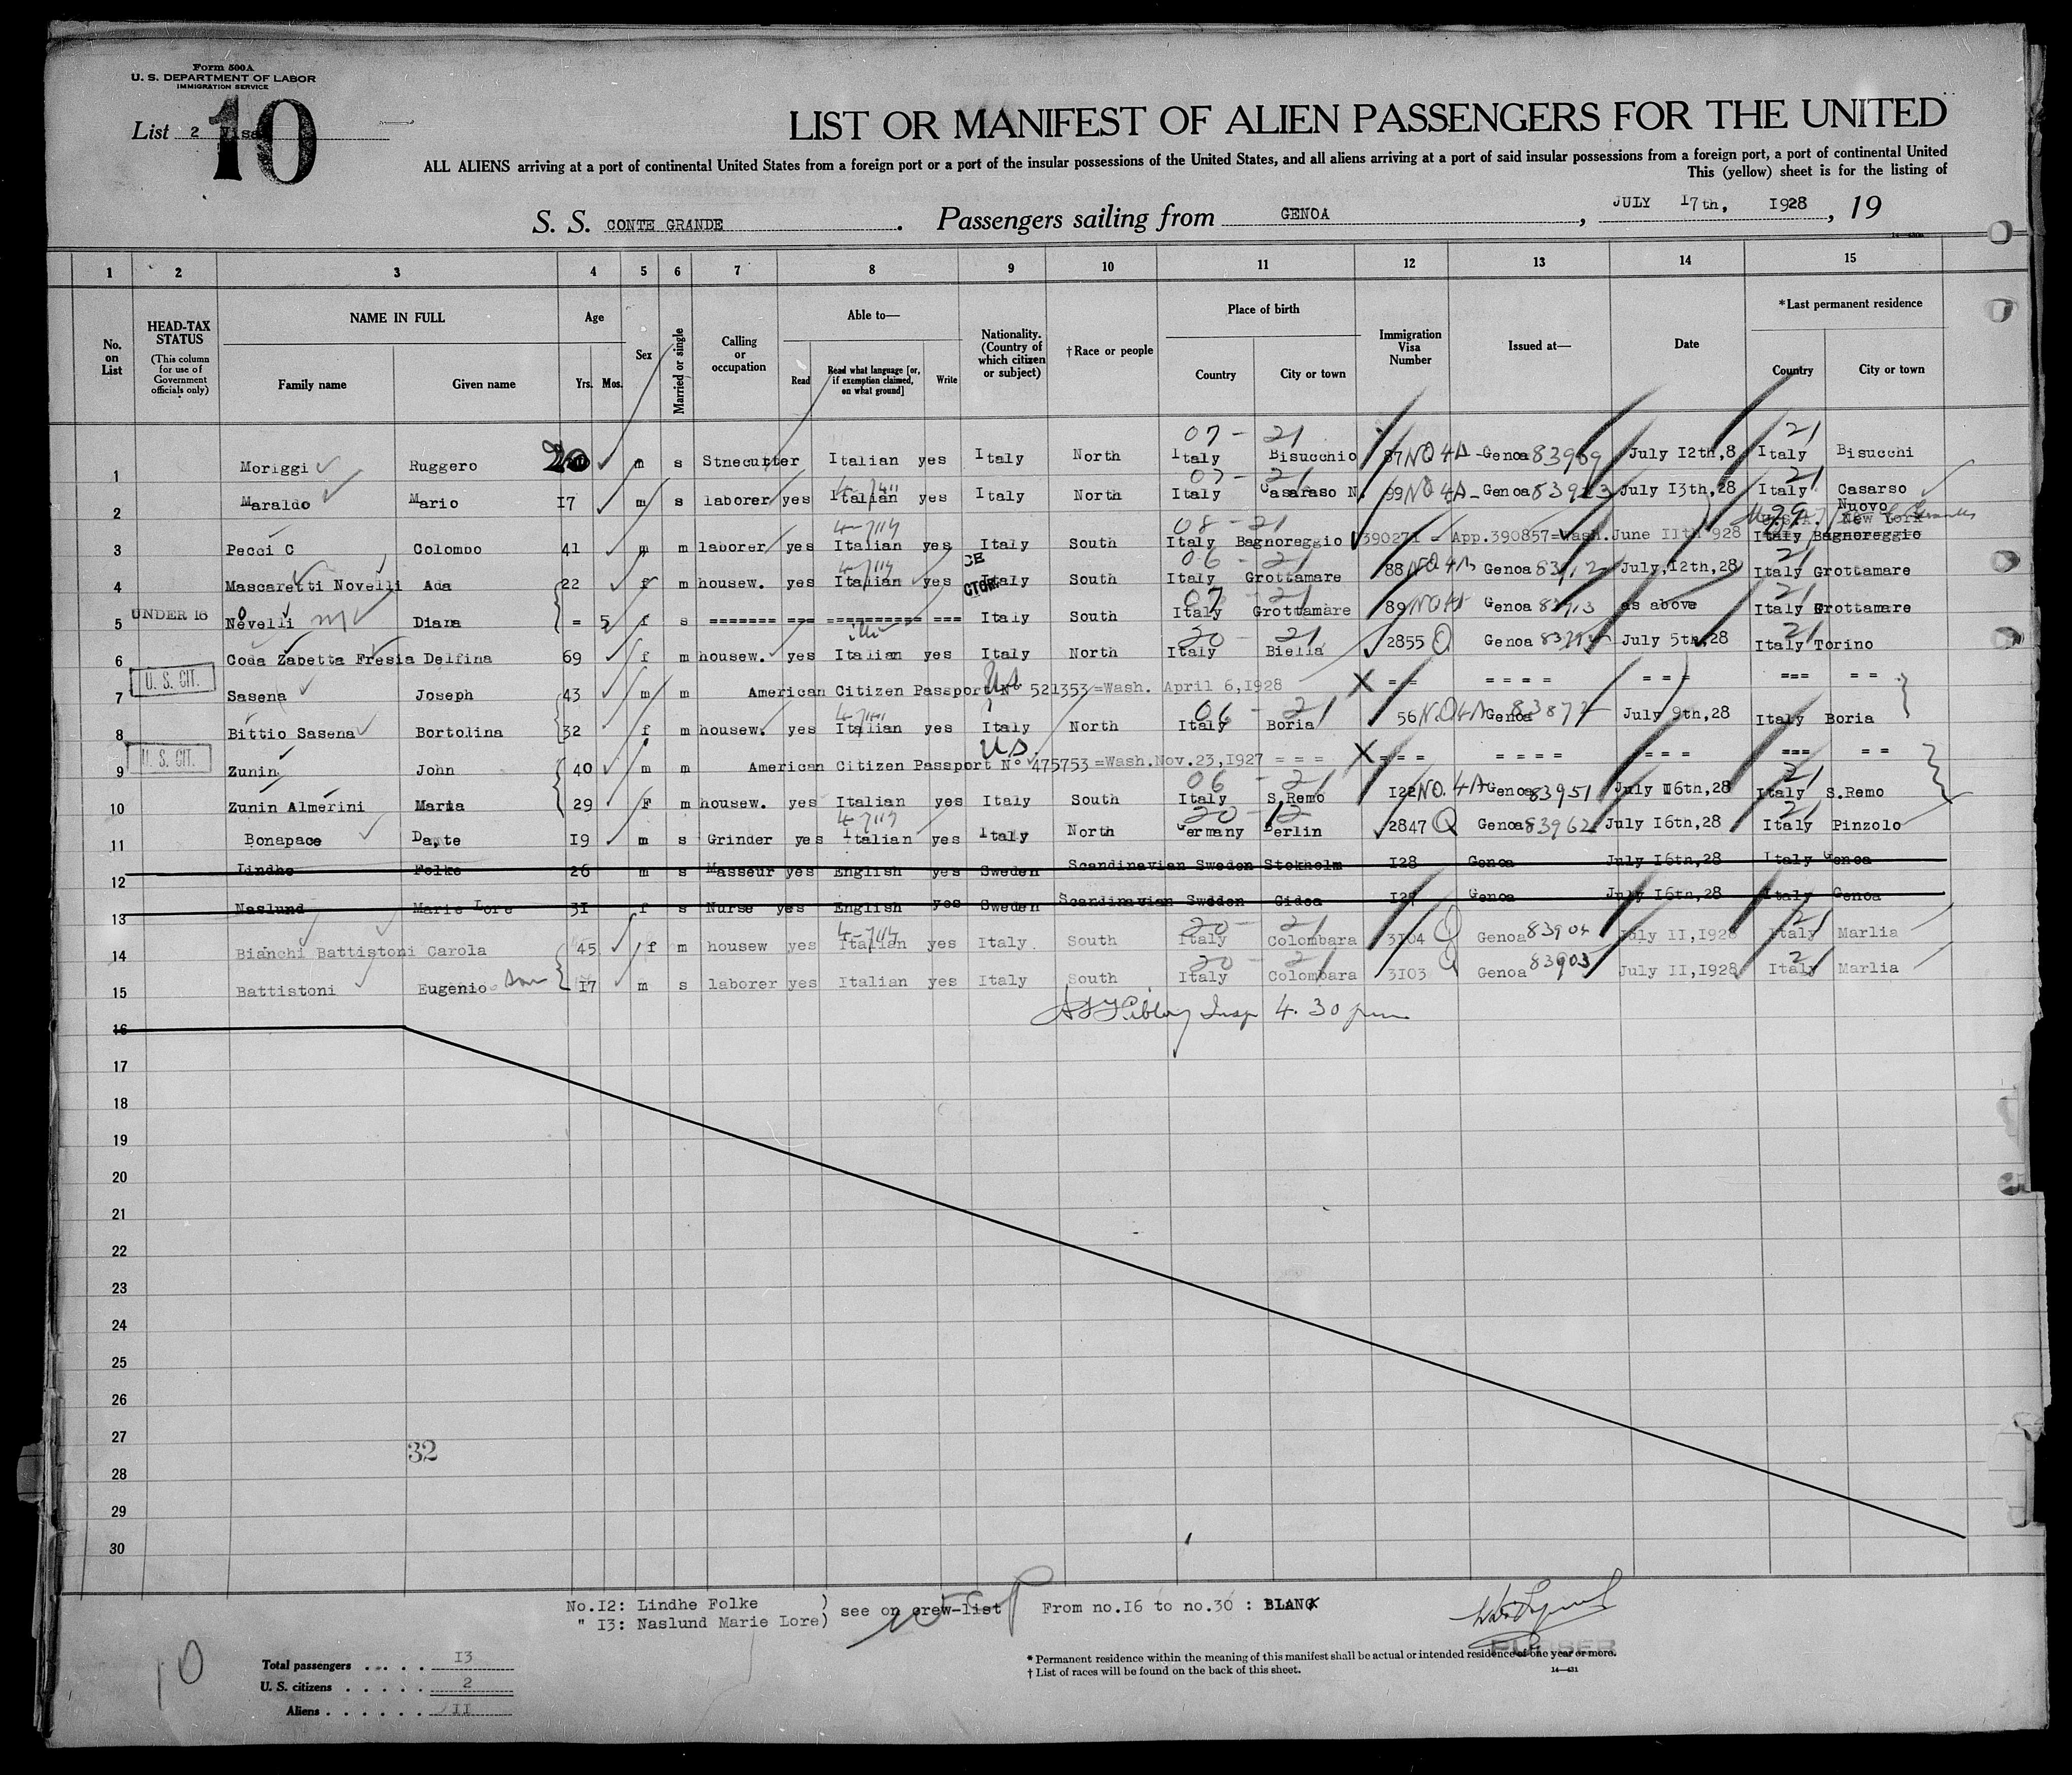 Form 500A
U. S. DEPARTMENT OF LABOR
IMMIGRATION SERVICE
List 2 Visa
10
LIST OR MANIFEST OF ALIEN PASSENGERS FOR THE UNITED
ALL ALIENS arriving at a port of continental United States from a foreign port or a port of the insular possessions of the United States, and all aliens arriving at a port of said insular possessions from a foreign port, a port of continental United
This (yellow) sheet is for the listing of
S. S. CONTE GRANDE. Passengers sailing from GENOA, JULY 17th, 1928, 19
1 2 3 4 5 6 7 8 9 10 11 12 13 14 15
No. on List
HEAD-TAX STATUS (This column for use of Government officials only)
NAME IN FULL Family name Given name
Age Yrs. Mos.
Sex
Married or single
Calling or occupation
Able to— Read Read what language [or, if exemption claimed, on what ground] Write
Nationality. (Country of which citizen or subject)
†Race or people
Place of birth Country City or town
Immigration Visa Number
Issued at—
Date
*Last permanent residence Country City or town
07 - 21 21
1 Moriggi Ruggero 20 m s Stnecutter Italian yes Italy North Italy Bisucchio 87 NQ 4A - Genoa 83909 July I2th,8 Italy Bisucchi
2 Maraldo Mario I7 m s laborer yes Italian yes Italy North Italy Casaraso N. 99 NQ 4A - Genoa 83923 July I3th,28 Italy Casarso Nuovo
08 - 21 New York
3 Pecci C Colombo 41 m m laborer yes Italian yes Italy South Italy Bagnoreggio 390271 = App.390857=Wash.June IIth 928 Italy Bagnoreggio
06 - 21 21
4 Mascaretti Novelli Ada 22 f m housew. yes Italian yes Italy South Italy Grottamare 88 NQ 4A Genoa 83912 July,I2th,28 Italy Grottamare
07 - 21 21
UNDER 16 5 Novelli Diana = 5 f s ======= === ========== === Italy South Italy Grottamare 89 NQ 4A Genoa 83913 as above Italy Grottamare
20 - 21 21
6 Coda Zabetta Fresia Delfina 69 f m housew. yes Italian yes Italy North Italy Biella 2855 Q Genoa July 5th,28 Italy Torino
U. S. CIT. 7 Sasena Joseph 43 m m American Citizen Passport N° 521353=Wash. April 6,I928 X = = = = = = = = = = === = =
06 - 21
8 Bittio Sasena Bortolina 32 f m housew. yes Italian yes Italy North Italy Boria 56 N.Q 4A Genoa 83872 July 9th,28 Italy Boria
US.
U. S. CIT. 9 Zunin John 40 m m American Citizen Passport N° 475753=Wash.Nov.23,I927 = = = X = = = = = = = = = = === = =
06 - 21 21
10 Zunin Almerini Maria 29 F m housew. yes Italian yes Italy South Italy S.Remo I22 NO. 4A Genoa 83951 July I6th,28 Italy S.Remo
20 - 12 21
11 Bonapace Dante I9 m s Grinder yes Italian yes Italy North Germany Berlin 2847 Q Genoa 83962 July I6th,28 Italy Pinzolo
12 Lindhe Folke 26 m s Masseur yes English yes Sweden Scandinavian Sweden Stokholm I28 Genoa July I6th,28 Italy Genoa
13 Naslund Marie Lore 3I f s Nurse yes English yes Sweden Scandinavian Sweden Gidea I27 Genoa July I6th,28 Italy Genoa
20 - 21 21
14 Bianchi Battistoni Carola 45 f m housew yes Italian yes Italy. South Italy Colombara 3I04 Q Genoa 83904 July II,I928 Italy Marlia
20 - 21 21
15 Battistoni Eugenio son I7 m s laborer yes Italian yes Italy South Italy Colombara 3I03 Q Genoa 83903 July II,I928 Italy Marlia
Insp 4.30 pm
16
17
18
19
20
21
22
23
24
25
26
27
32
28
29
30
No.I2: Lindhe Folke )
" I3: Naslund Marie Lore) see on crew-list From no.I6 to no.30 : BLANK
10
Total passengers . . . . . I3
U. S. citizens . . . . . 2
Aliens . . . . . . II
PURSER
* Permanent residence within the meaning of this manifest shall be actual or intended residence of one year or more.
† List of races will be found on the back of this sheet.
14—431